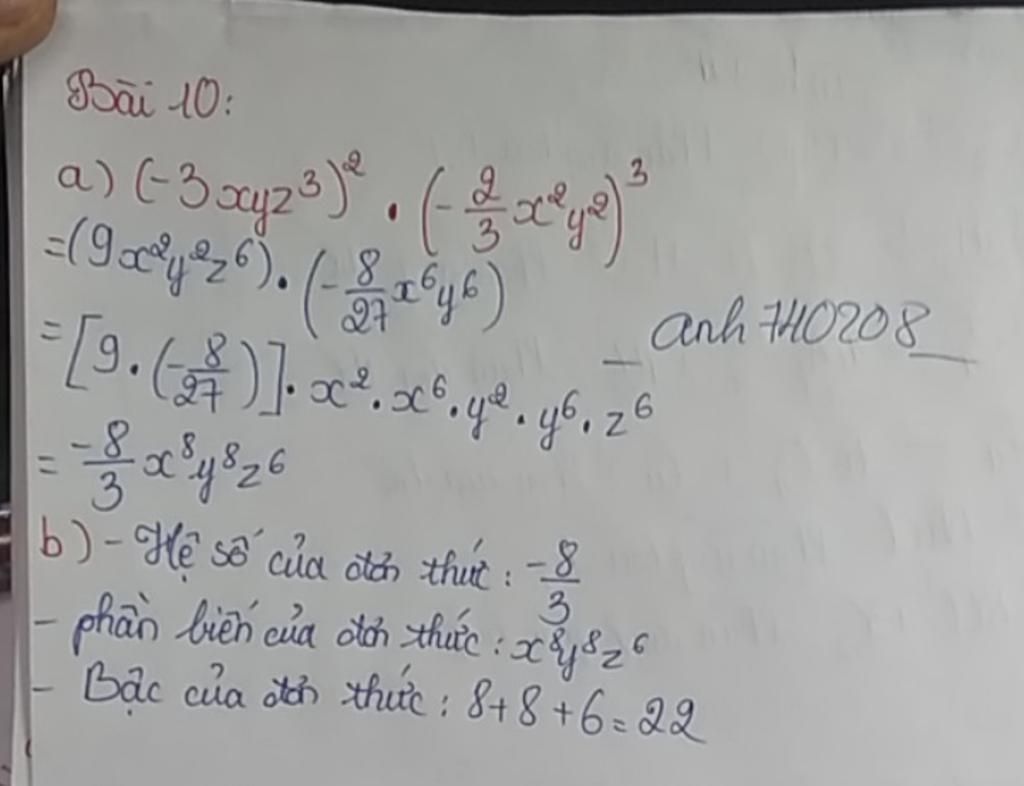 Bài 10:
a) (-3xyz³)² · (-2/3 x²y²)³
=(9x²y²z⁶) · (-8/27 x⁶y⁶)
= [9 · (-8/27)] · x² · x⁶ · y² · y⁶ · z⁶
anh740208
= -8/3 x⁸y⁸z⁶
b) - Hệ số của đơn thức: -8/3
- phần biến của đơn thức: x⁸y⁸z⁶
- Bậc của đơn thức: 8+8+6=22